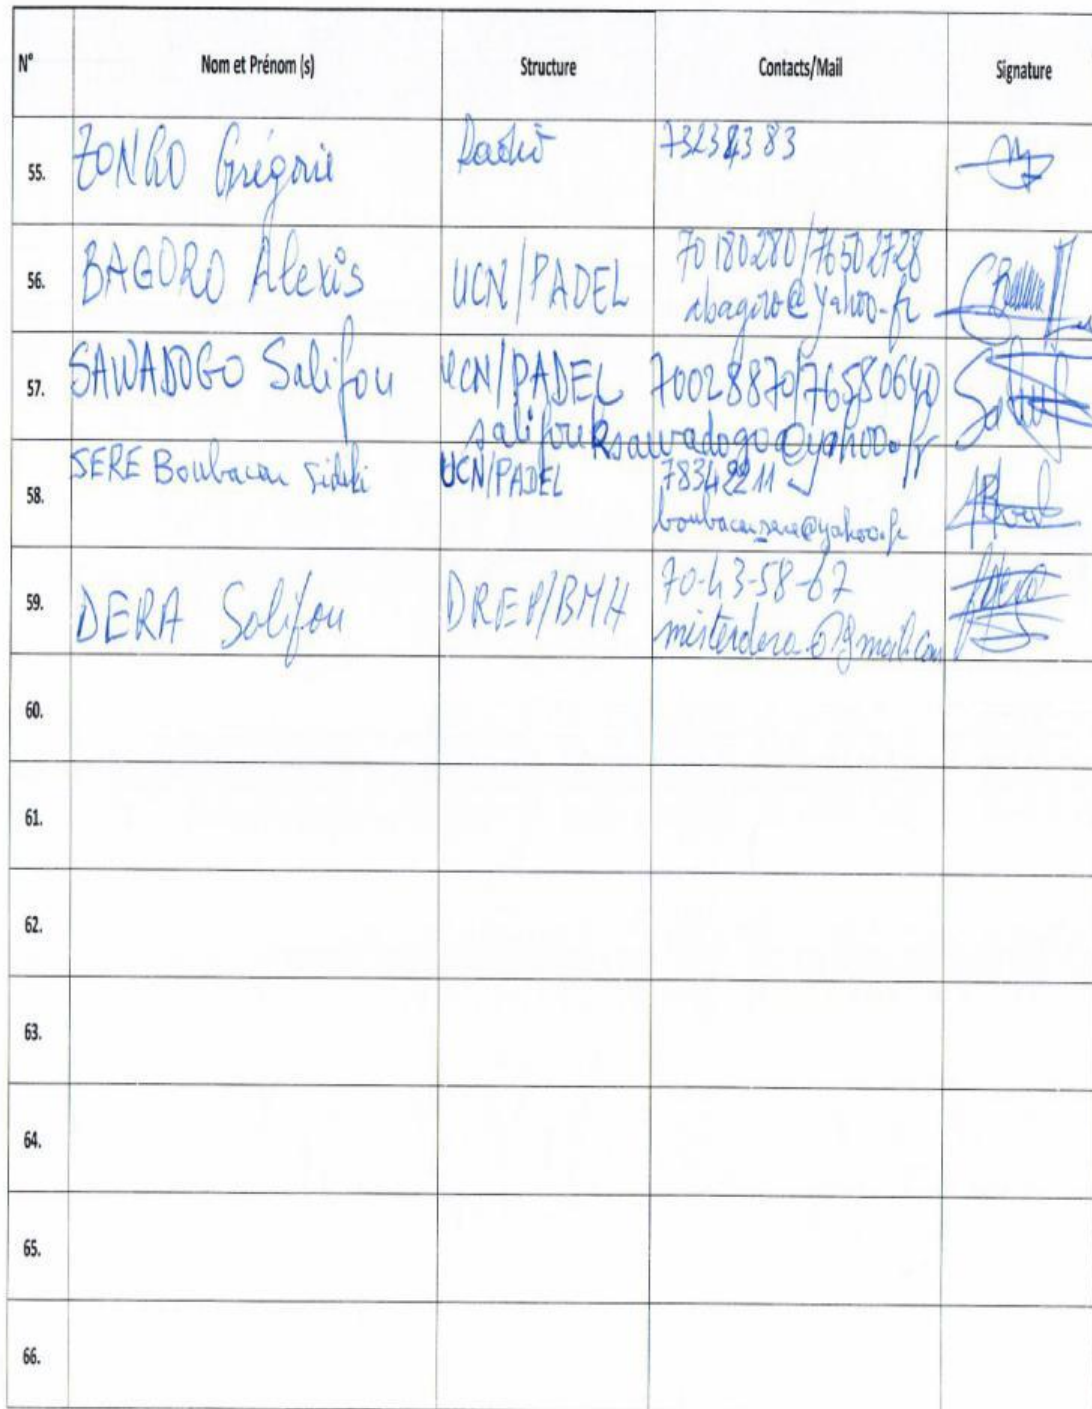 N° Nom et Prénom (s) Structure Contacts/Mail Signature
55. Grégorie 73234383
56. BAGORO Alexis UCN/PADEL 70180280/76502728
abagoro@yahoo.fr
57. SAWADOGO Salifou UCN/PADEL 70028870/76580640
salifouksawadogo@yahoo.fr
58. SERE Boubacar Sidiki UCN/PADEL 78342211
boubacarsere@yahoo.fr
59. DERA Salifou DREP/BMH 70-43-58-67
misterdera@gmail.com
60.
61.
62.
63.
64.
65.
66.